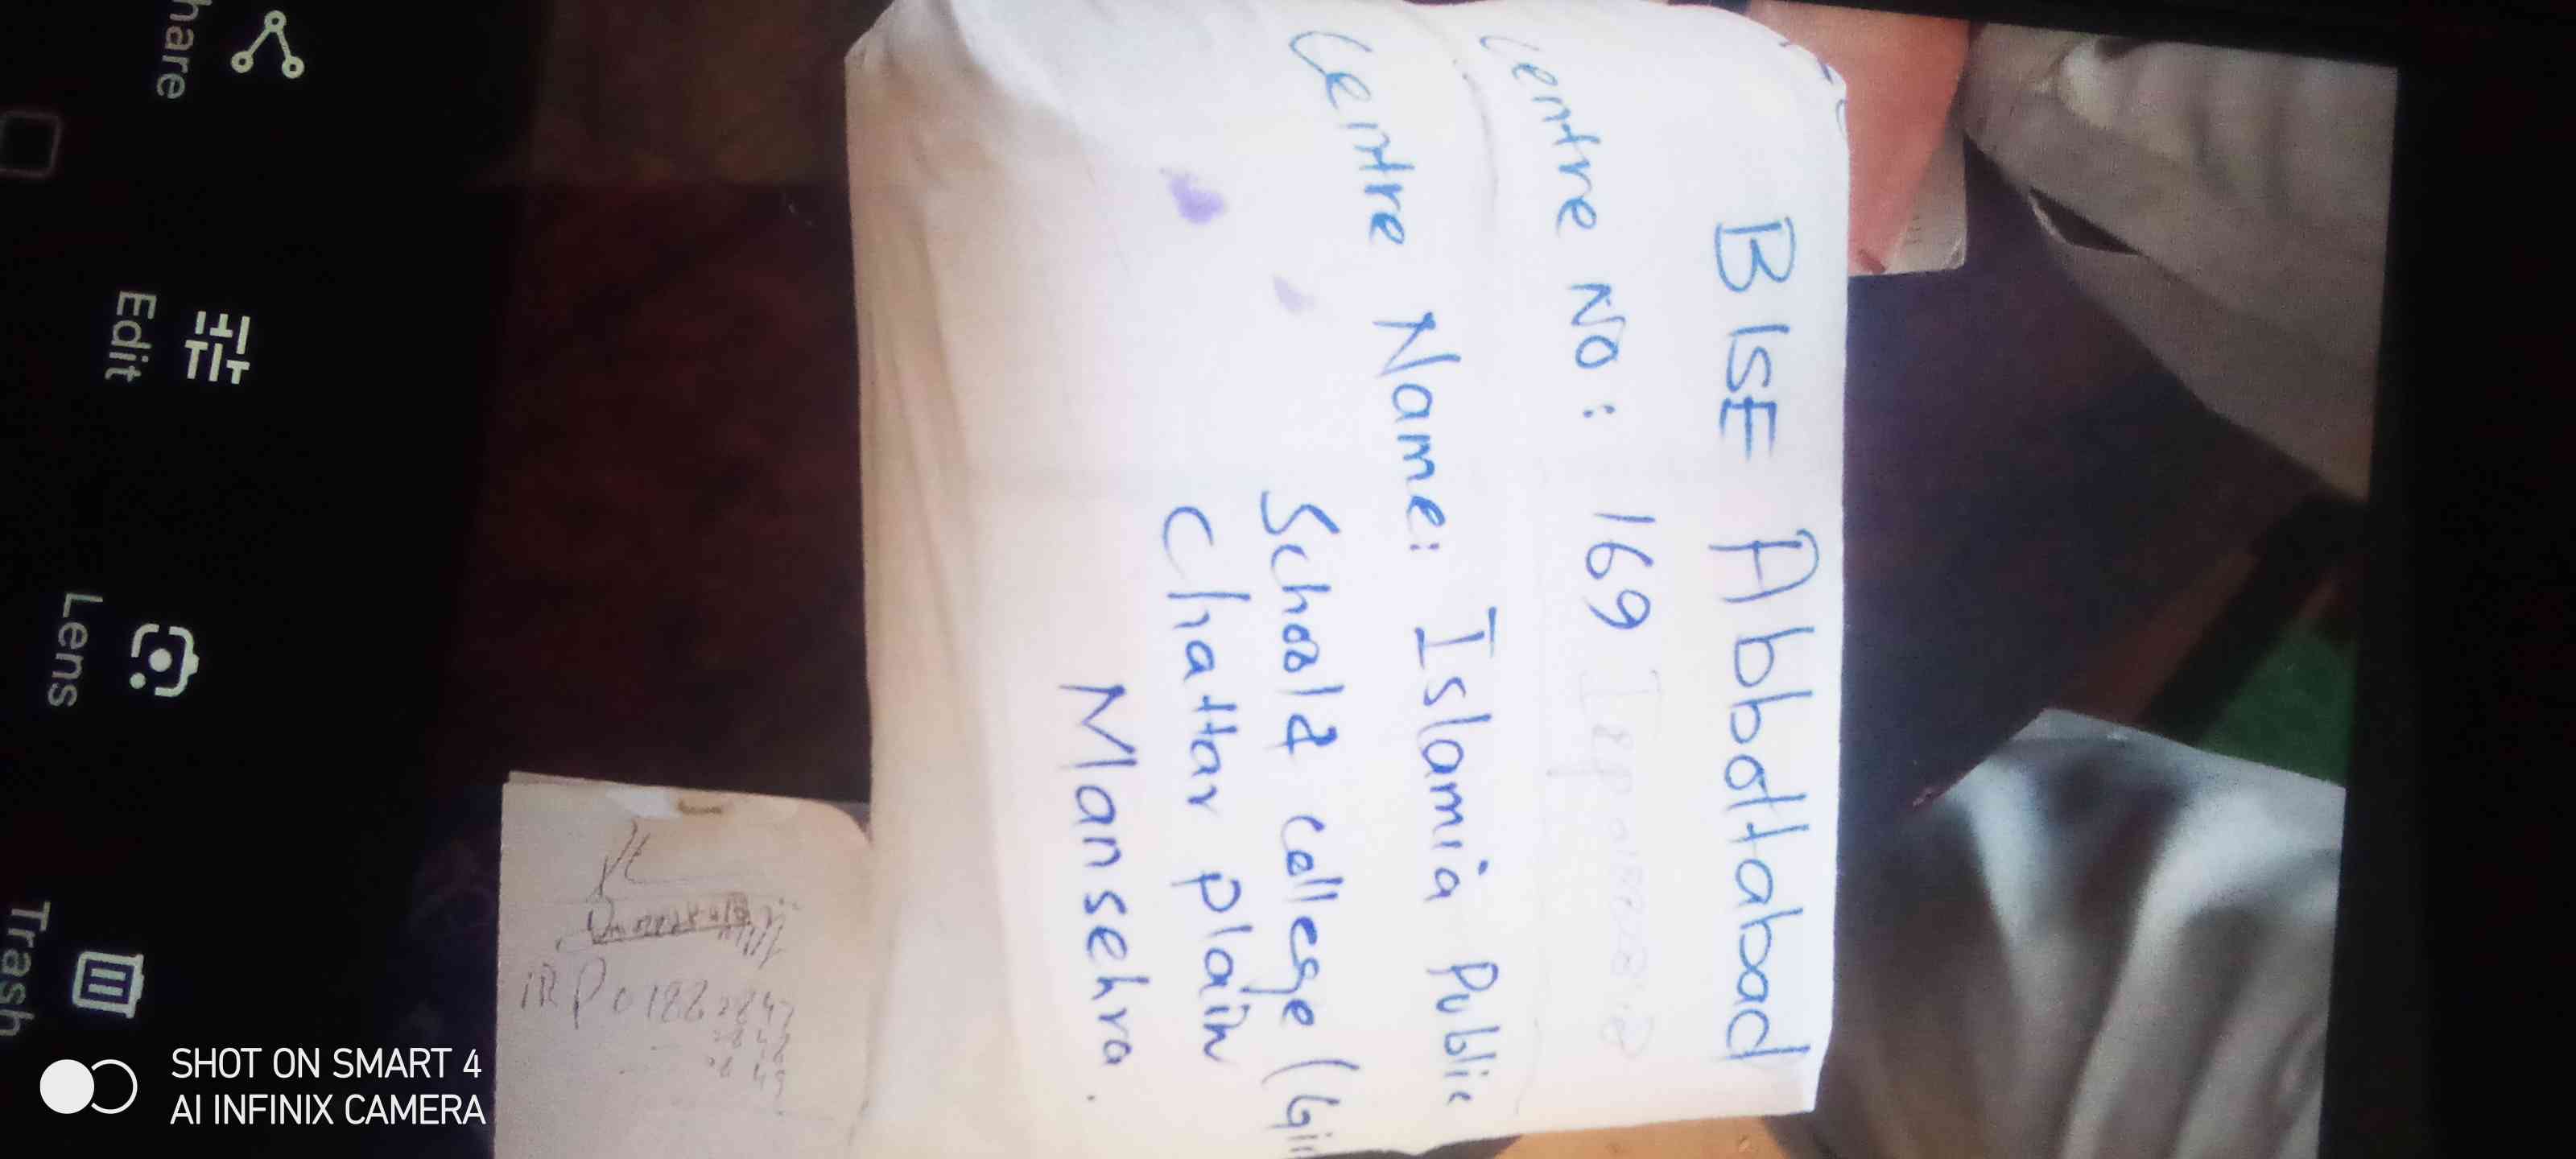 BISE Abbottabad
Centre No: 169
Centre Name: Islamia Public
School & College (Gir
Chattar plain
Mansehra.
iRP
hare
Edit
Lens
Trash
SHOT ON SMART 4
AI INFINIX CAMERA